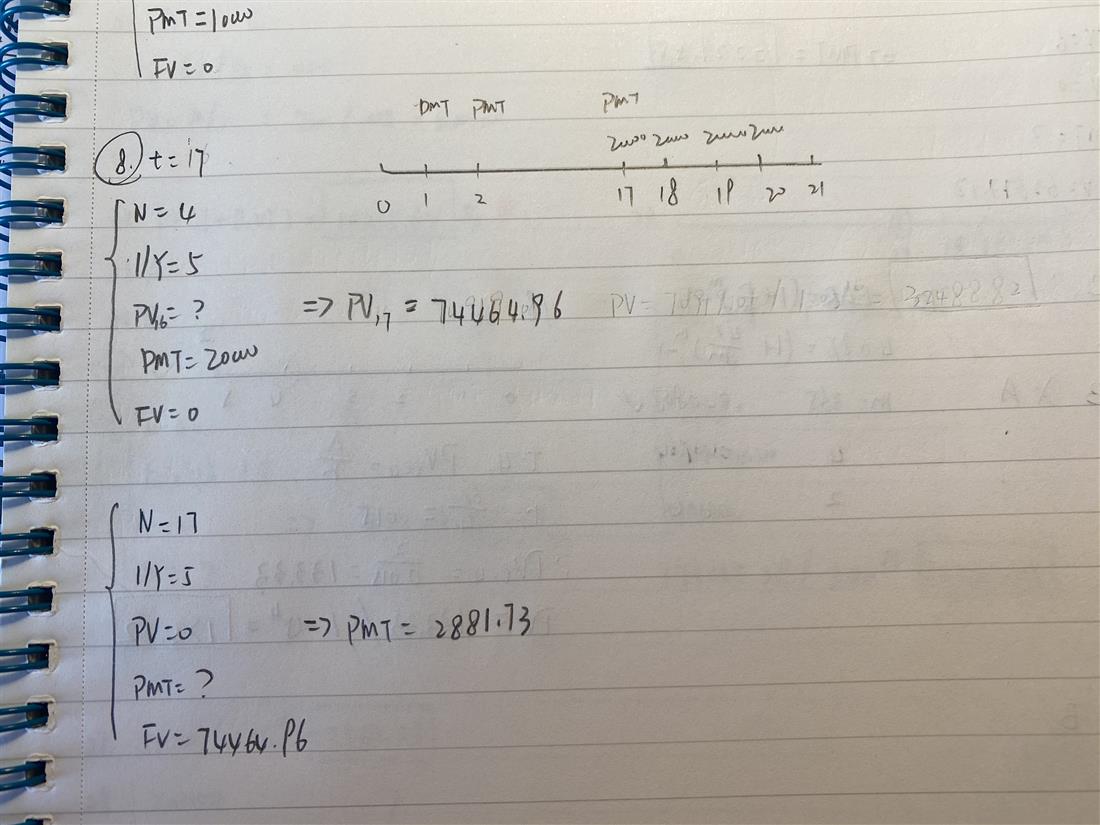 PMT = 10000
FV = 0
PMT PMT PMT
20000 20000 20000 20000
8. t = 17
0 1 2 17 18 19 20 21
N = 4
I/Y = 5
PV16 = ? => PV17 = 74464.96
PMT = 20000
FV = 0
N = 17
I/Y = 5
PV = 0 => PMT = 2881.73
PMT = ?
FV = 74464.96